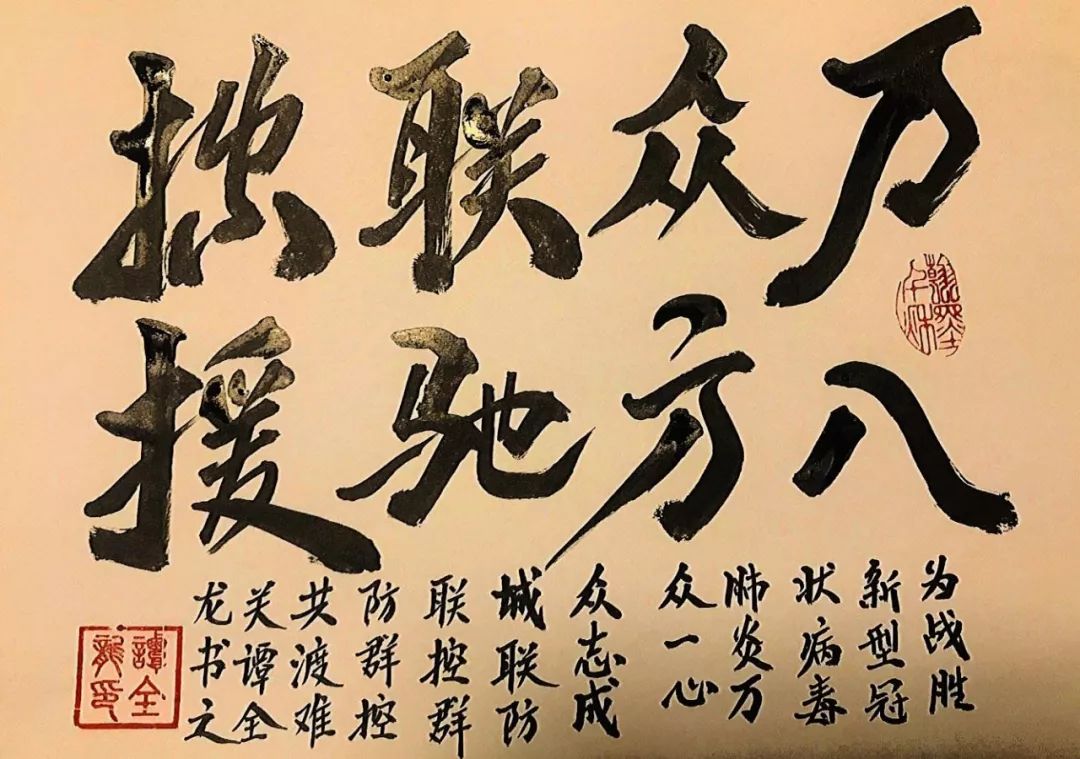 万众联控
八方驰援
为战胜
新型冠
状病毒
肺炎万
众一心
众志成
城联防
联控群
防群控
共渡难
关谭全
龙书之
翰墨千秋
譚全龍印